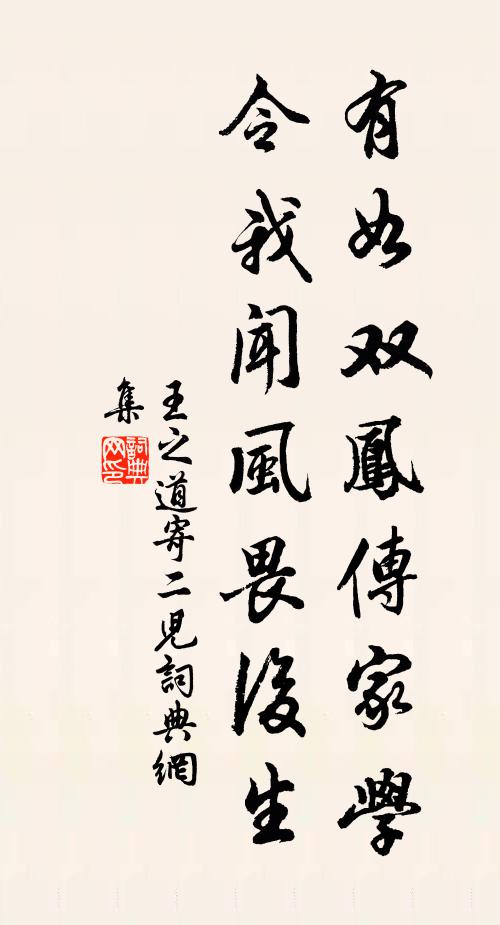 有如双鳳傳家學
令我聞風畏後生
王之道寄二児詞典網
集
詞典網印